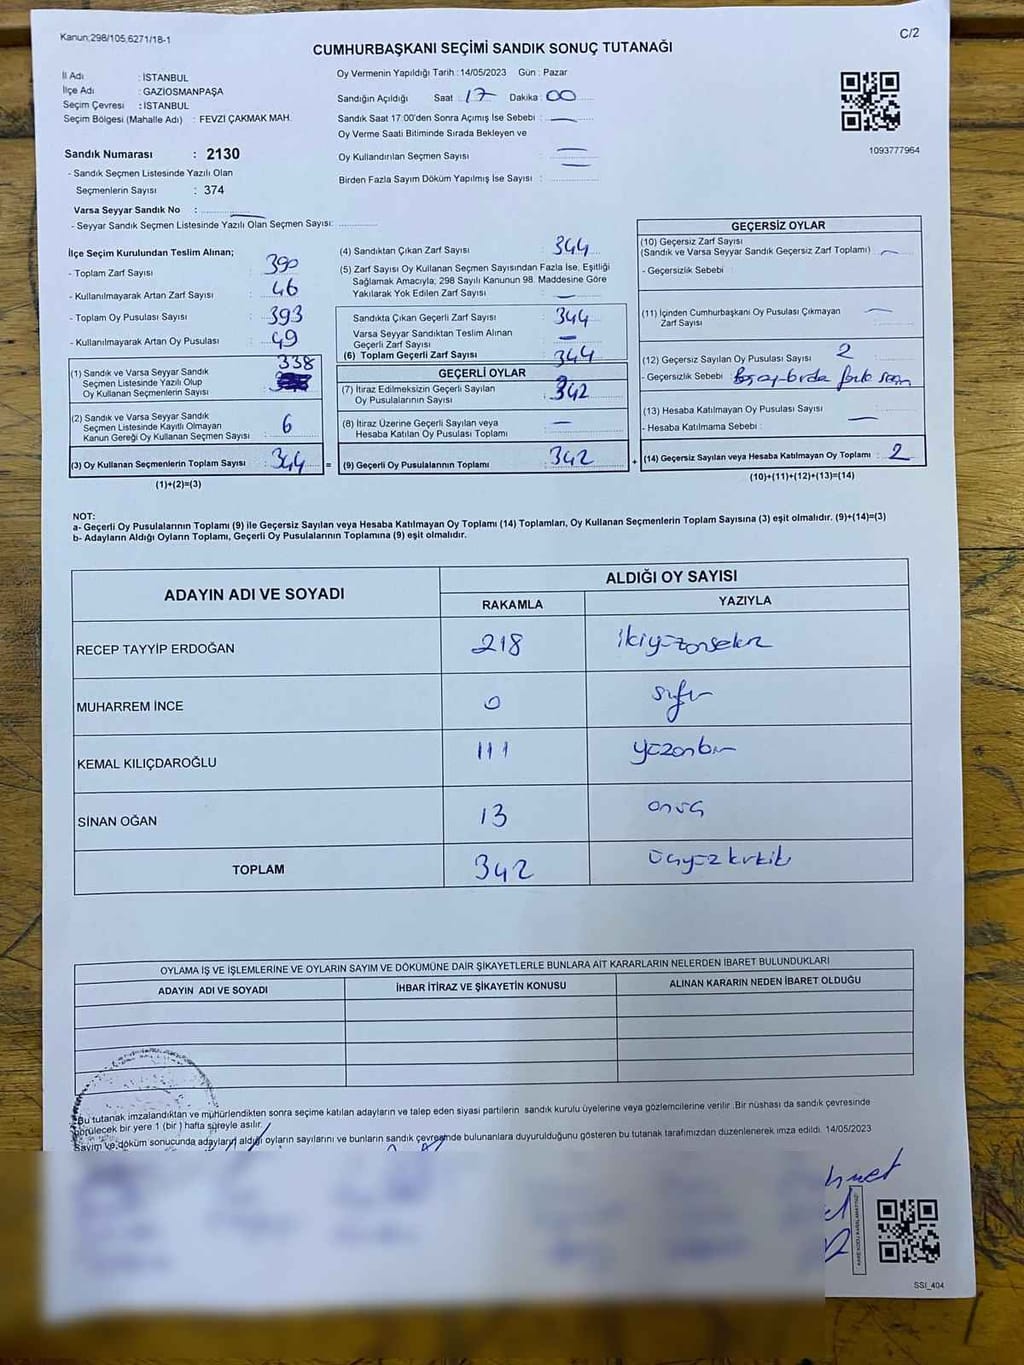 Kanun:298/105,6271/18-1
C/2
CUMHURBAŞKANI SEÇİMİ SANDIK SONUÇ TUTANAĞI
İl Adı : İSTANBUL
İlçe Adı : GAZİOSMANPAŞA
Seçim Çevresi : İSTANBUL
Seçim Bölgesi (Mahalle Adı) : FEVZİ ÇAKMAK MAH.
Sandık Numarası : 2130
- Sandık Seçmen Listesinde Yazılı Olan
Seçmenlerin Sayısı : 374
Varsa Seyyar Sandık No :
- Seyyar Sandık Seçmen Listesinde Yazılı Olan Seçmen Sayısı:
Oy Vermenin Yapıldığı Tarih : 14/05/2023 Gün : Pazar
Sandığın Açıldığı Saat : 17 Dakika : 00
Sandık Saat 17:00'den Sonra Açımış İse Sebebi : —
Oy Verme Saati Bitiminde Sırada Bekleyen ve
Oy Kullandırılan Seçmen Sayısı : —
Birden Fazla Sayım Döküm Yapılmış İse Sayısı : —
1093777964
İlçe Seçim Kurulundan Teslim Alınan;
- Toplam Zarf Sayısı : 390
- Kullanılmayarak Artan Zarf Sayısı : 46
- Toplam Oy Pusulası Sayısı : 393
- Kullanılmayarak Artan Oy Pusulası : 49
338
(1) Sandık ve Varsa Seyyar Sandık
Seçmen Listesinde Yazılı Olup
Oy Kullanan Seçmenlerin Sayısı :
(2) Sandık ve Varsa Seyyar Sandık
Seçmen Listesinde Kayıtlı Olmayan
Kanun Gereği Oy Kullanan Seçmen Sayısı : 6
(3) Oy Kullanan Seçmenlerin Toplam Sayısı : 344 =
(1)+(2)=(3)
(4) Sandıktan Çıkan Zarf Sayısı : 344
(5) Zarf Sayısı Oy Kullanan Seçmen Sayısından Fazla İse, Eşitliği
Sağlamak Amacıyla; 298 Sayılı Kanunun 98. Maddesine Göre
Yakılarak Yok Edilen Zarf Sayısı : —
Sandıkta Çıkan Geçerli Zarf Sayısı : 344
Varsa Seyyar Sandıktan Teslim Alınan
Geçerli Zarf Sayısı : —
(6) Toplam Geçerli Zarf Sayısı : 344
GEÇERLİ OYLAR
(7) İtiraz Edilmeksizin Geçerli Sayılan
Oy Pusulalarının Sayısı : 342
(8) İtiraz Üzerine Geçerli Sayılan veya
Hesaba Katılan Oy Pusulası Toplamı : —
(9) Geçerli Oy Pusulalarının Toplamı : 342 +
GEÇERSİZ OYLAR
(10) Geçersiz Zarf Sayısı
(Sandık ve Varsa Seyyar Sandık Geçersiz Zarf Toplamı) : —
- Geçersizlik Sebebi :
(11) İçinden Cumhurbaşkanı Oy Pusulası Çıkmayan
Zarf Sayısı : —
(12) Geçersiz Sayılan Oy Pusulası Sayısı : 2
- Geçersizlik Sebebi :
(13) Hesaba Katılmayan Oy Pusulası Sayısı : —
- Hesaba Katılmama Sebebi :
(14) Geçersiz Sayılan veya Hesaba Katılmayan Oy Toplamı : 2
(10)+(11)+(12)+(13)=(14)
NOT:
a- Geçerli Oy Pusulalarının Toplamı (9) ile Geçersiz Sayılan veya Hesaba Katılmayan Oy Toplamı (14) Toplamları, Oy Kullanan Seçmenlerin Toplam Sayısına (3) eşit olmalıdır. (9)+(14)=(3)
b- Adayların Aldığı Oyların Toplamı, Geçerli Oy Pusulalarının Toplamına (9) eşit olmalıdır.
ADAYIN ADI VE SOYADI
ALDIĞI OY SAYISI
RAKAMLA YAZIYLA
RECEP TAYYİP ERDOĞAN 218 ikiyüzonsekiz
MUHARREM İNCE 0 sıfır
KEMAL KILIÇDAROĞLU 111 yüzonbir
SİNAN OĞAN 13 onüç
TOPLAM 342 üçyüzkırkiki
OYLAMA İŞ VE İŞLEMLERİNE VE OYLARIN SAYIM VE DÖKÜMÜNE DAİR ŞİKAYETLERLE BUNLARA AİT KARARLARIN NELERDEN İBARET BULUNDUKLARI
ADAYIN ADI VE SOYADI İHBAR İTİRAZ VE ŞİKAYETİN KONUSU ALINAN KARARIN NEDEN İBARET OLDUĞU
Bu tutanak imzalandıktan ve mühürlendikten sonra seçime katılan adayların ve talep eden siyasi partilerin sandık kurulu üyelerine veya gözlemcilerine verilir. Bir nüshası da sandık çevresinde
görülecek bir yere 1 (bir) hafta süreyle asılır.
Sayım ve döküm sonucunda adayların aldığı oyların sayılarını ve bunların sandık çevresinde bulunanlara duyurulduğunu gösteren bu tutanak tarafımızdan düzenlenerek imza edildi. 14/05/2023
SSI_404